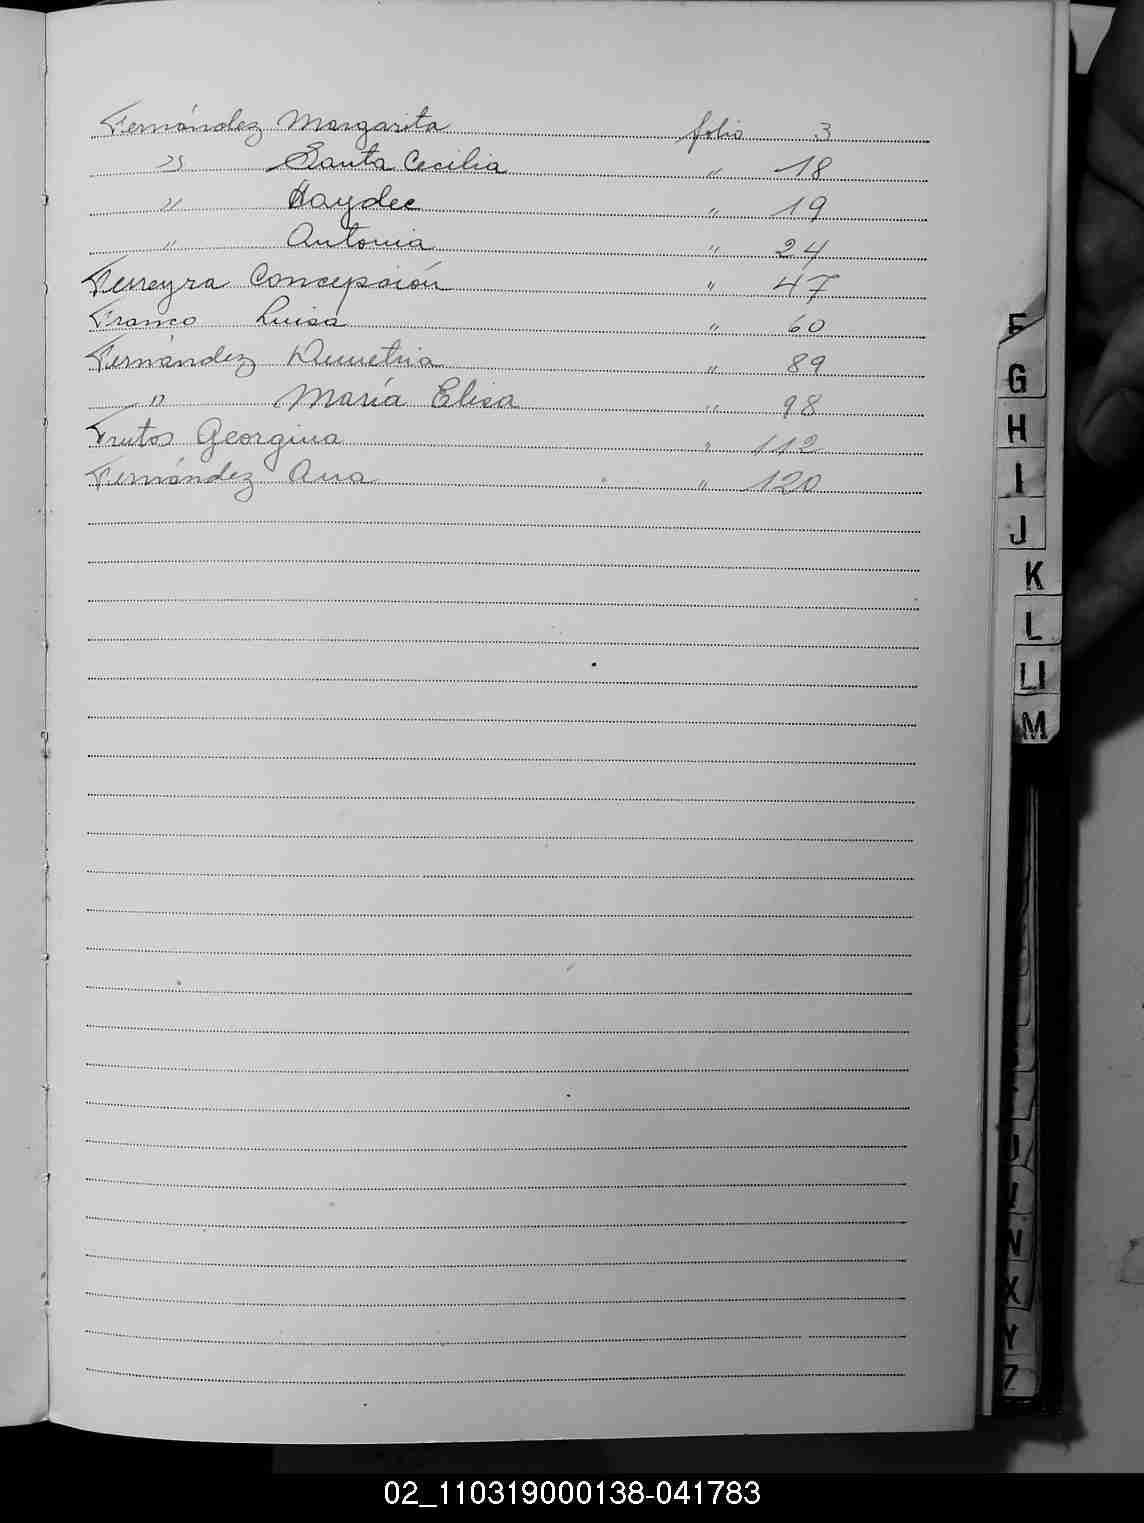 Fernández Margarita folio 3
" Santa Cecilia " 18
" Haydee " 19
" Antonia " 24
Ferreyra Concepción " 47
Franco Luisa " 60
Fernández Demetria " 89
" María Elisa " 98
Frutos Georgina " 112
Fernández Ana " 120
F
G
H
I
J
K
L
Ll
M
N
X
Y
Z
02_110319000138-041783